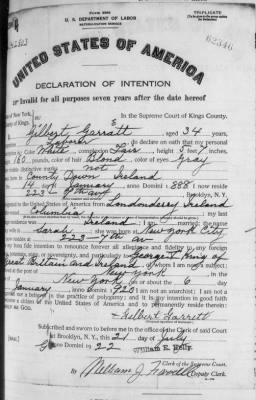 Form 2203
TRIPLICATE
U. S. DEPARTMENT OF LABOR
NATURALIZATION SERVICE
62346
UNITED STATES OF AMERICA
DECLARATION OF INTENTION
Invalid for all purposes seven years after the date hereof
of New York,
County of Kings,
In the Supreme Court of Kings County.
Gilbert Garratt, aged 34 years,
occupation Laborer, do declare on oath that my personal
Color White, complexion Fair, height 5 feet 7 inches,
160 pounds, color of hair Blond, color of eyes Gray
other visible distinctive marks Not
in County Down Ireland
14 day of January, anno Domini 1888; I now reside
223 9th av, Brooklyn, N. Y.
United States of America from Londonderry Ireland
; my last
Ireland; I am married; the name
wife is Sarah; she was born at New York City
223 7th av
It is my bona fide intention to renounce forever all allegiance and fidelity to any foreign
, state, or sovereignty, and particularly to George V King of
Great Britain and Ireland, of whom I am now a subject;
at the port of New York, in the
New York, on or about the 6 day
January, anno Domini 1923; I am not an anarchist; I am not a
nor a believer in the practice of polygamy; and it is my intention in good faith
a citizen of the United States of America and to permanently reside therein:
ME GOD.
Gilbert Garrett
Subscribed and sworn to before me in the office of the Clerk of said Court
at Brooklyn, N. Y., this 21 day of July
anno Domini 1922
William E. Kelly,
Clerk of the Supreme Court.
By
Deputy Clerk.